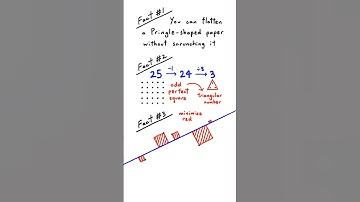 Fact #1
You can flatten
a Pringle-shaped paper
without scrunching it
Fact #2
25 →⁻¹ 24 →÷8 3
odd
perfect
square
triangular
number
Fact #3
minimize
red